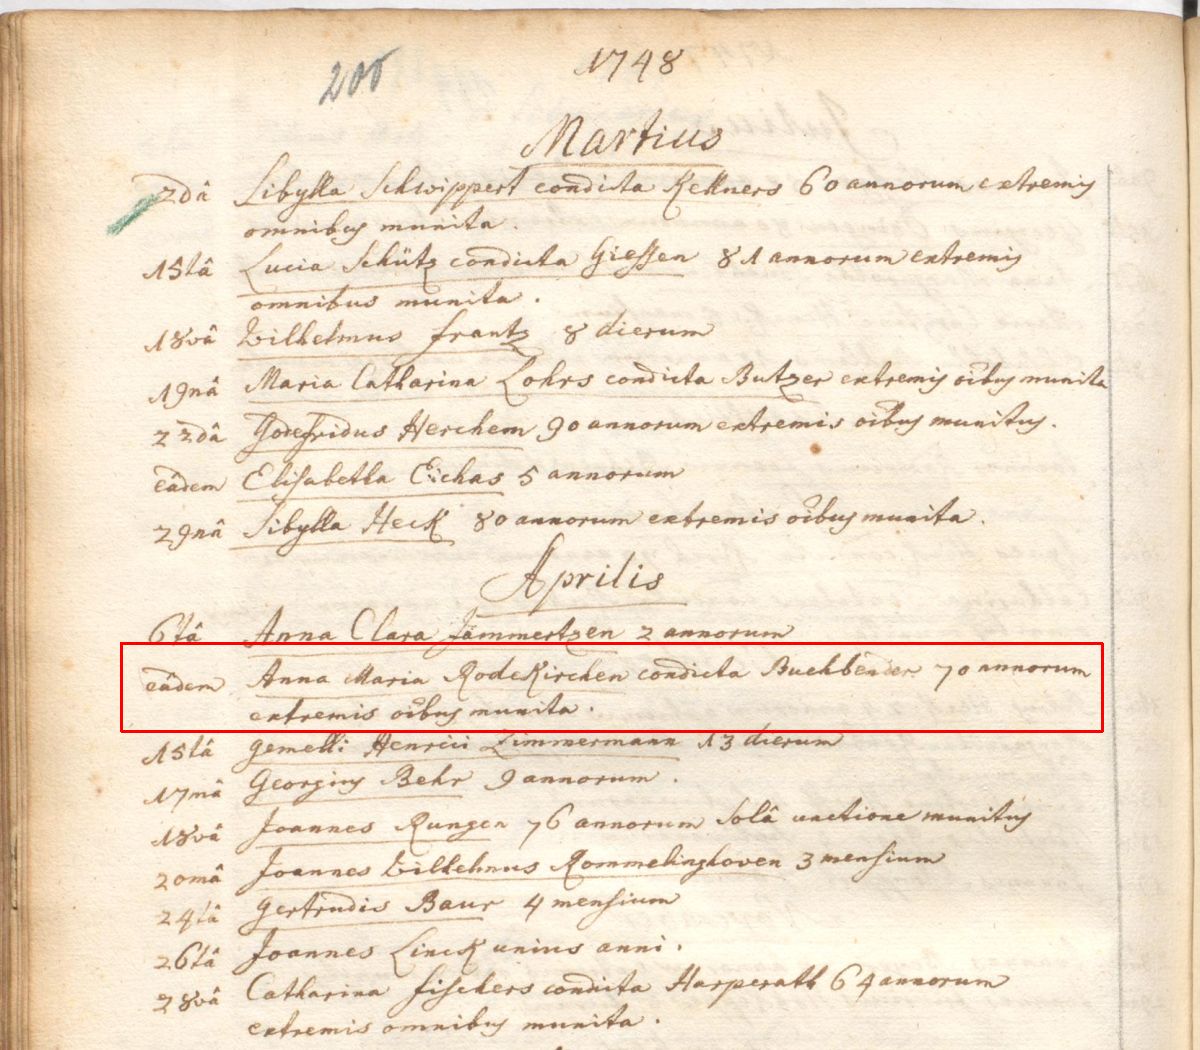 200
1748
Martius
2dâ Sibylla Schwippert condicta Kellners 60 annorum extremis
omnibus munita.
15tâ Lucia Schütz condicta Giessen 81 annorum extremis
omnibus munita.
18vâ Wilhelmus frantz 8 dierum
19nâ Maria Catharina Lohrs condicta Butzer extremis oibus munita
22dâ Godefridus Herchem 90 annorum extremis oibus munitus.
eâdem Elisabetha Eichas 5 annorum
29nâ Sibylla Heck 80 annorum extremis oibus munita.
Aprilis
6tâ Anna Clara Jämmertzen 2 annorum
eâdem Anna Maria Rodekirchen condicta Buchbender 70 annorum
extremis oibus munita.
15tâ gemelli Henrici Zimmermann 13 dierum
17mâ Georgius Behr 9 annorum.
18vâ Joannes Rungen 76 annorum solâ unctione munitus
20mâ Joannes Wilhelmus Rommelinghoven 3 mensium
24tâ Gertrudis Baur 4 mensium
26tâ Joannes Linck unius anni.
28vâ Catharina fischers condita Harperath 64 annorum
extremis omnibus munita.